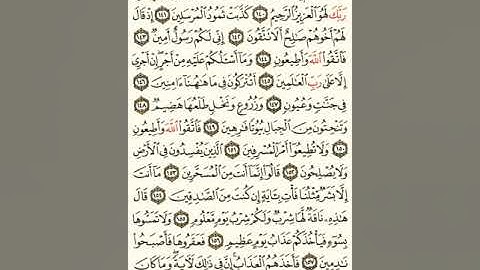 رَبَّكَ لَهُوَ الْعَزِيزُ الرَّحِيمُ ١٤٠ كَذَّبَتْ ثَمُودُ الْمُرْسَلِينَ ١٤١ إِذْ قَالَ
لَهُمْ أَخُوهُمْ صَالِحٌ أَلَا تَتَّقُونَ ١٤٢ إِنِّي لَكُمْ رَسُولٌ أَمِينٌ ١٤٣
فَاتَّقُوا اللَّهَ وَأَطِيعُونِ ١٤٤ وَمَا أَسْأَلُكُمْ عَلَيْهِ مِنْ أَجْرٍ إِنْ أَجْرِيَ
إِلَّا عَلَىٰ رَبِّ الْعَالَمِينَ ١٤٥ أَتُتْرَكُونَ فِي مَا هَاهُنَا آمِنِينَ ١٤٦
فِي جَنَّاتٍ وَعُيُونٍ ١٤٧ وَزُرُوعٍ وَنَخْلٍ طَلْعُهَا هَضِيمٌ ١٤٨
وَتَنْحِتُونَ مِنَ الْجِبَالِ بُيُوتًا فَارِهِينَ ١٤٩ فَاتَّقُوا اللَّهَ وَأَطِيعُونِ
١٥٠ وَلَا تُطِيعُوا أَمْرَ الْمُسْرِفِينَ ١٥١ الَّذِينَ يُفْسِدُونَ فِي الْأَرْضِ
وَلَا يُصْلِحُونَ ١٥٢ قَالُوا إِنَّمَا أَنْتَ مِنَ الْمُسَحَّرِينَ ١٥٣ مَا أَنْتَ
إِلَّا بَشَرٌ مِثْلُنَا فَأْتِ بِآيَةٍ إِنْ كُنْتَ مِنَ الصَّادِقِينَ ١٥٤ قَالَ
هَٰذِهِ نَاقَةٌ لَهَا شِرْبٌ وَلَكُمْ شِرْبُ يَوْمٍ مَعْلُومٍ ١٥٥ وَلَا تَمَسُّوهَا
بِسُوءٍ فَيَأْخُذَكُمْ عَذَابُ يَوْمٍ عَظِيمٍ ١٥٦ فَعَقَرُوهَا فَأَصْبَحُوا
نَادِمِينَ ١٥٧ فَأَخَذَهُمُ الْعَذَابُ إِنَّ فِي ذَٰلِكَ لَآيَةً وَمَا كَانَ